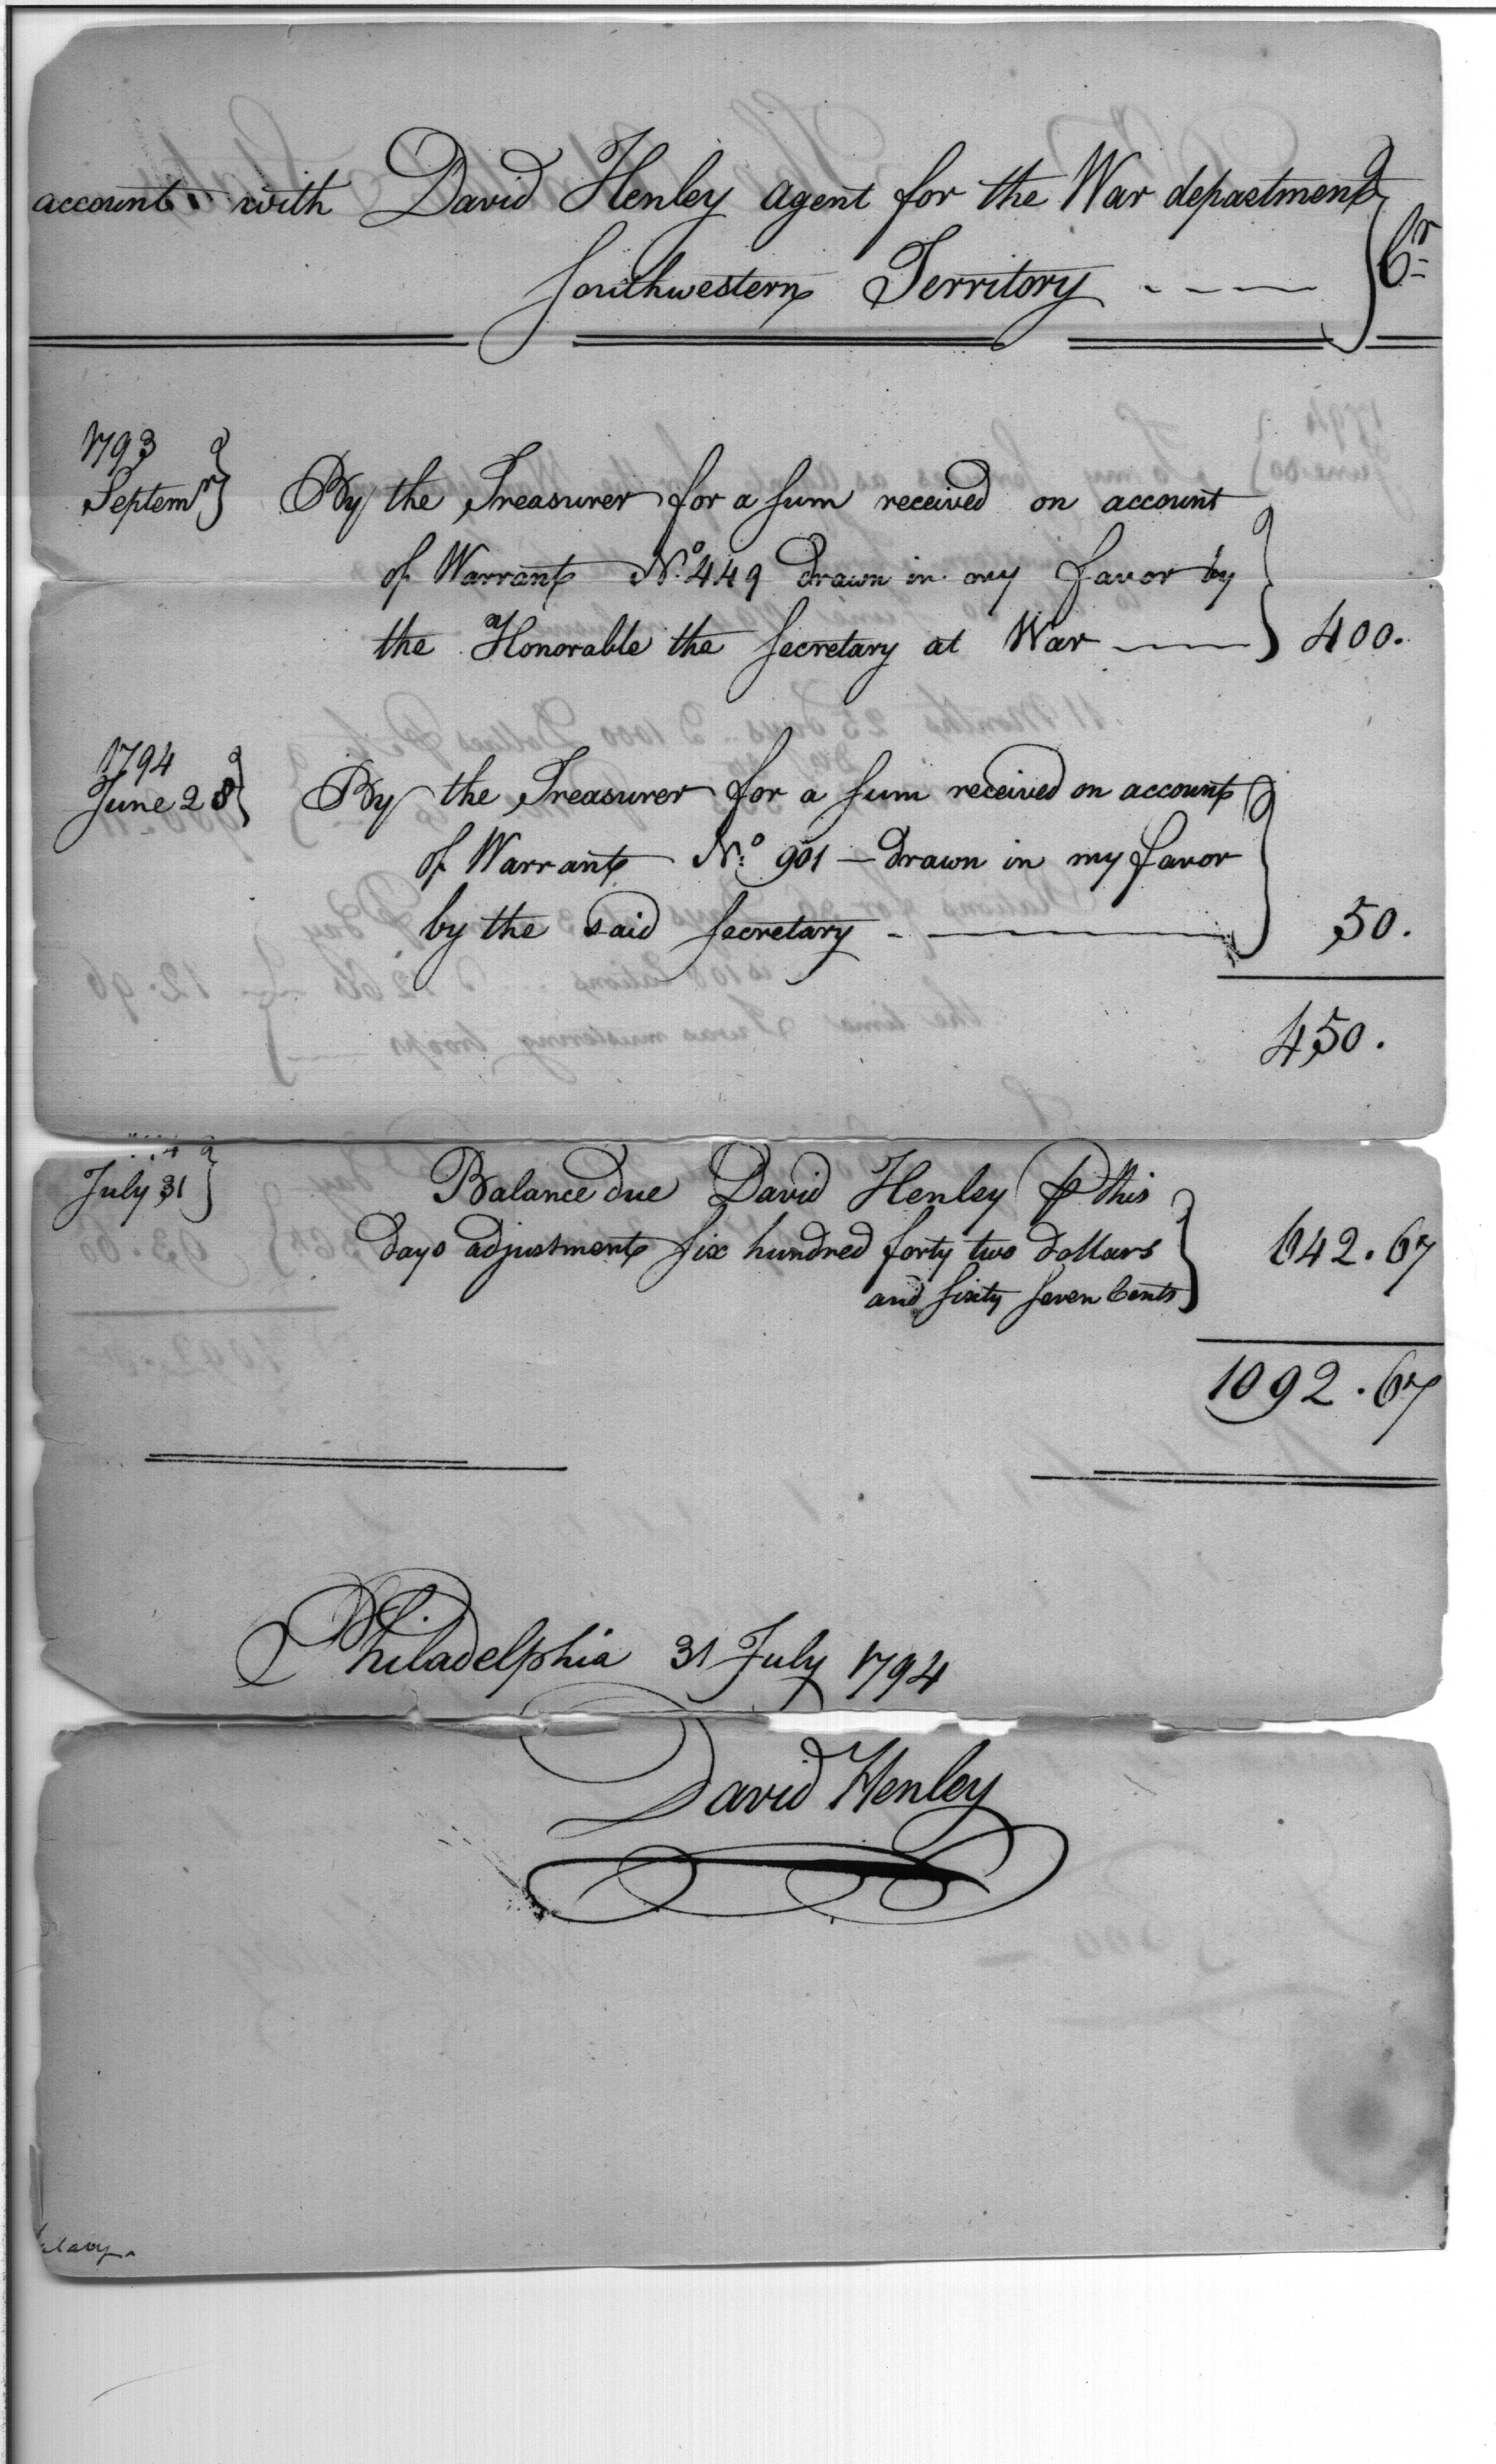 account with David Henley agent for the War department
Southwestern Territory
Cr
1793
Septemr
By the Treasurer for a sum received on account
of Warrant No. 449 drawn in my favor by
the Honorable the Secretary at War 400.
1794
June 28
By the Treasurer for a sum received on account
of Warrant No. 901 — drawn in my favor
by the said Secretary 50.
450.
July 31
Balance due David Henley ⅌ this
days adjustment six hundred forty two dollars 642.67
and sixty seven Cents
1092.67
Philadelphia 31 July 1794
David Henley